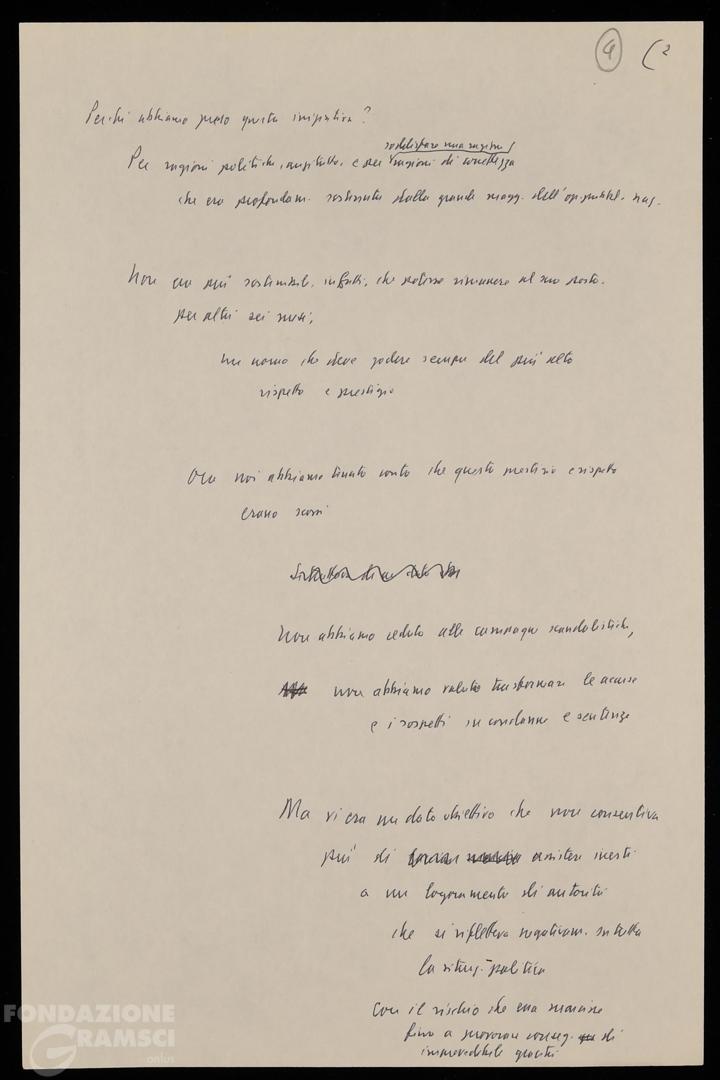 4 (2
Perché abbiamo preso questa iniziativa?
soddisfare una ragione
Per ragioni politiche, anzitutto, e per ragioni di
che era profondam. sostenuta dalla grande magg. dell'op. naz.
Non era più sostenibile, infatti, che potesse rimanere al suo posto.
per altri sei mesi,
un uomo che deve godere sempre del più alto
rispetto e prestigio
Ora noi abbiamo tenuto conto che questo prestigio e rispetto
erano scossi
Non abbiamo ceduto alle campagne scandalistiche,
non abbiamo voluto trasformare le accuse
e i sospetti in condanne e sentenze
Ma vi era un dato obiettivo che non consentiva
più di assistere inerti
a un logoramento di autorità
che si rifletteva negativam. su tutta
la situaz. politica
Con il rischio che essa marcisse
fino a provocare conseg. di
imprevedibile gravità
FONDAZIONE
GRAMSCI
onlus